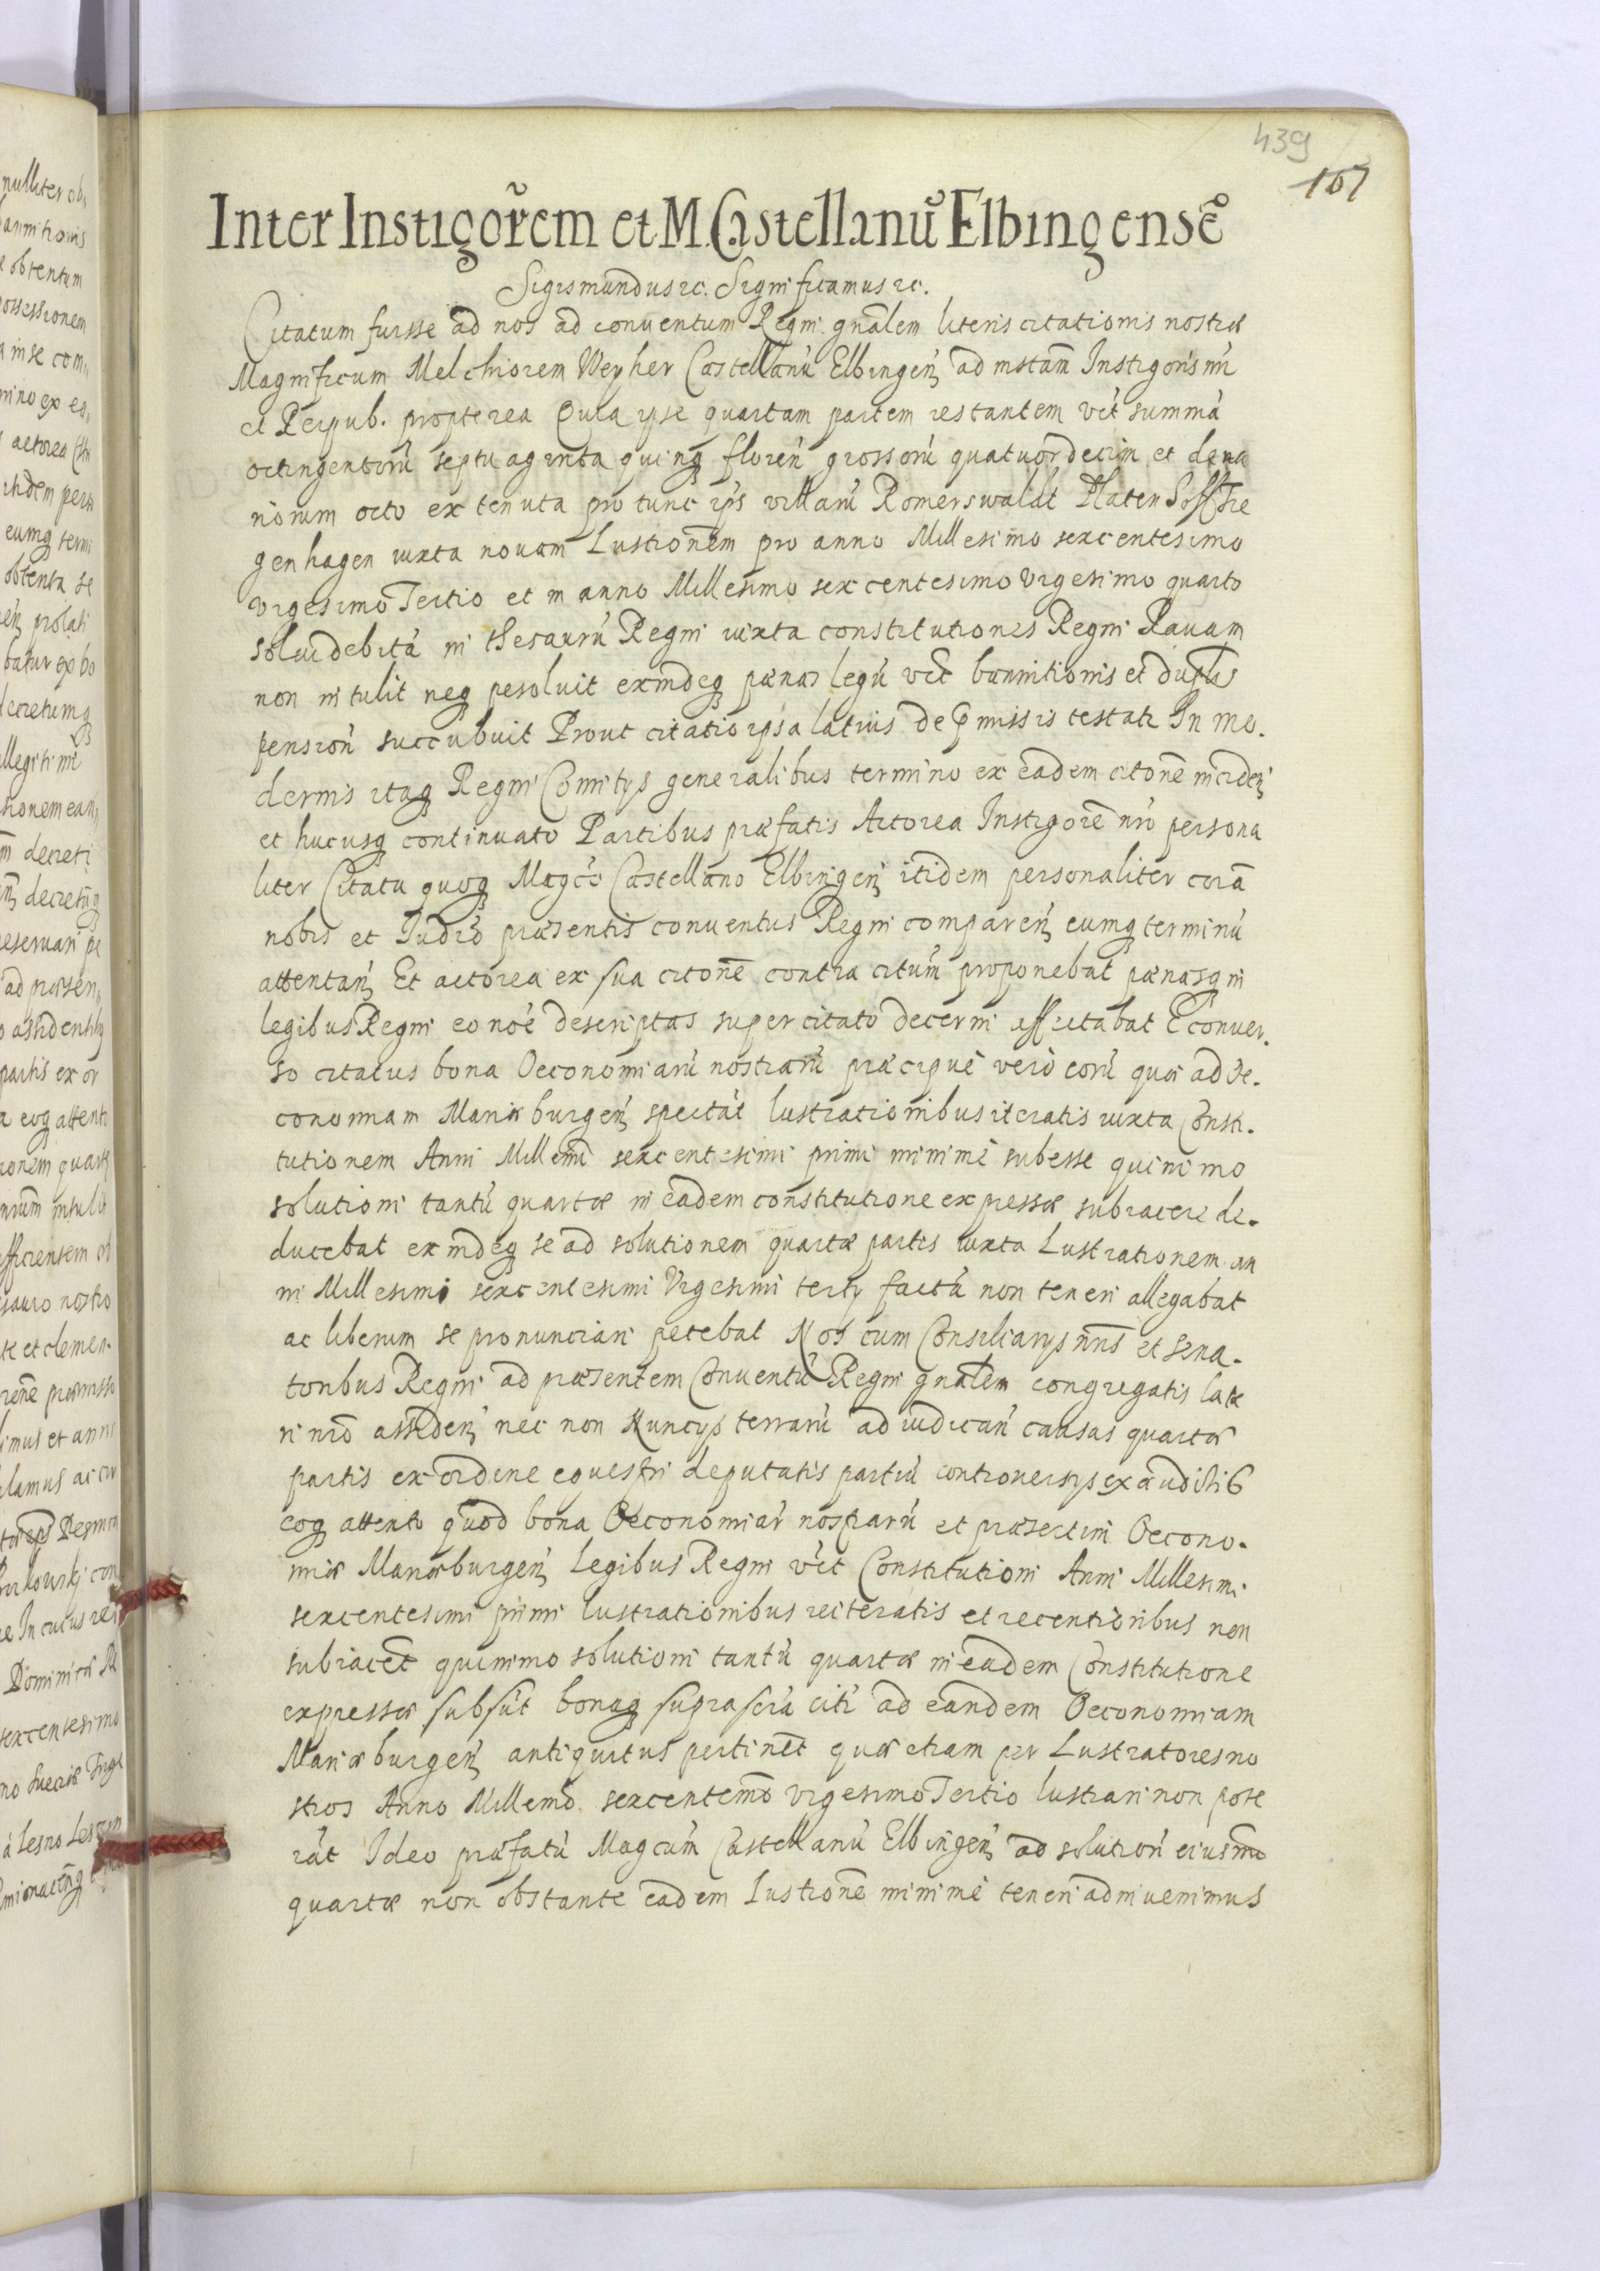 439
107
Inter Instigor̃em et M. Castellanũ Elbingensẽ
Sigismundus rc. Significamus rc.
Citatum fuisse ad nos ad conuentum Regni gnãlem literis citationis nostræ
Magnificum Melchiorem Weyher Castellanũ Elbingeñ ad instañ Instigoris nri
et Reipub. propterea Quia ipse quartam partem restantem vct summã
octingentorũ septuaginta quinq floreñ grossorũ quatuordecim et dena
riorum octo ex tenuta pro tunc ips villarũ Romerswaldt Platenhoff Tie
genhagen iuxta nouam Lustionẽm pro anno Millesimo sexcentesimo
vigesimo Tertio et in anno Millesimo sexcentesimo vigesimo quarto
solui debitã in thesaurũ Regni iuxta constitutiones Regni Rauam
non intulit neq pesoluit exindeq pænas legũ vct bannitionis et dupl
pensioñ succubuit Prout citatio ipsa latius de p̃missis testatr In mo.
dernis itaq Regni Comitijs generalibus termino ex eadem citonẽ inciden
et hucusq continuato Partibus præfatis Actorea Instigorẽ nrõ persona
liter Citata quoq Magcõ Castellano Elbingeñ itidem personaliter corã
nobis et Iudiõ præsentis conuentus Regni compareñ eumq terminũ
attentañ Et actorea ex sua citonẽ contra citum̃ proponebat pænasq in
legibus Regni eo noẽ descriptas super citato decerni affectabat E conuer.
so citatus bona Oeconomiarũ nostrarũ præcipuè verò eorũ quæ ad Oe.
conomiam Mariæburgeñ spectãt lustrationibus iteratis iuxta Consti.
tutionem Anni Millemĩ sexcentesimi primi minimè subesse quinimo
solutioni tantũ quartæ in eadem constitutione expressæ subiacere de.
ducebat exindeq se ad solutionem quartæ partis iuxta Lustrationem an
ni Millesimi sexcentesimi Vigesimi tertij factã non teneri allegabat
ac liberum se pronunciari petebat Nos cum Consiliarijs nris et Sena.
toribus Regni ad præsentem Conuentũ Regni gnãlem congregatis late
ri nrõ assideñ nec non Nuncijs terrarũ ad iudicañ causas quartæ
partis ex ordine equestri deputatis partiũ controuersijs exauditis
eoq attento quod bona Oeconomiarũ nostrarũ et præsertim Oecono.
miæ Mariæburgeñ legibus Regni vct Constitutioni Anni Millesimi
sexcentesimi primi lustrationibus reiteratis et recentioribus non
subiacẽt quinimo solutioni tantũ quartæ in eadem Constitutione
expressæ subsũt bonaq suprascrã citi ad eandem Oeconomiam
Mariæburgeñ antiquitus pertinẽt quæ etiam per Lustratores no
stros Anno Millemõ sexcentemõ vigesimo Tertio lustrari non pote
rãt Ideo præfatũ Magcum̃ Castellanũ Elbingeñ ad solutioñ eiusmõ
quartæ non obstante eadem Lustionẽ minimè teneri adinuenimus